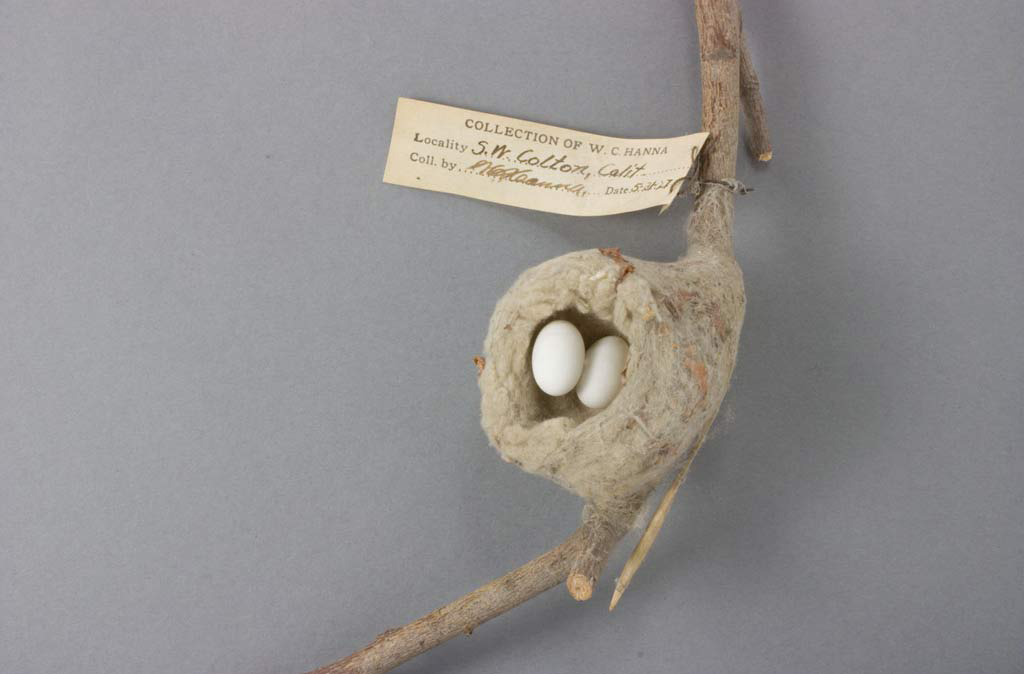 COLLECTION OF W. C. HANNA
Locality S.W. Colton, Calif.
Coll. by W.C. Hanna, Date